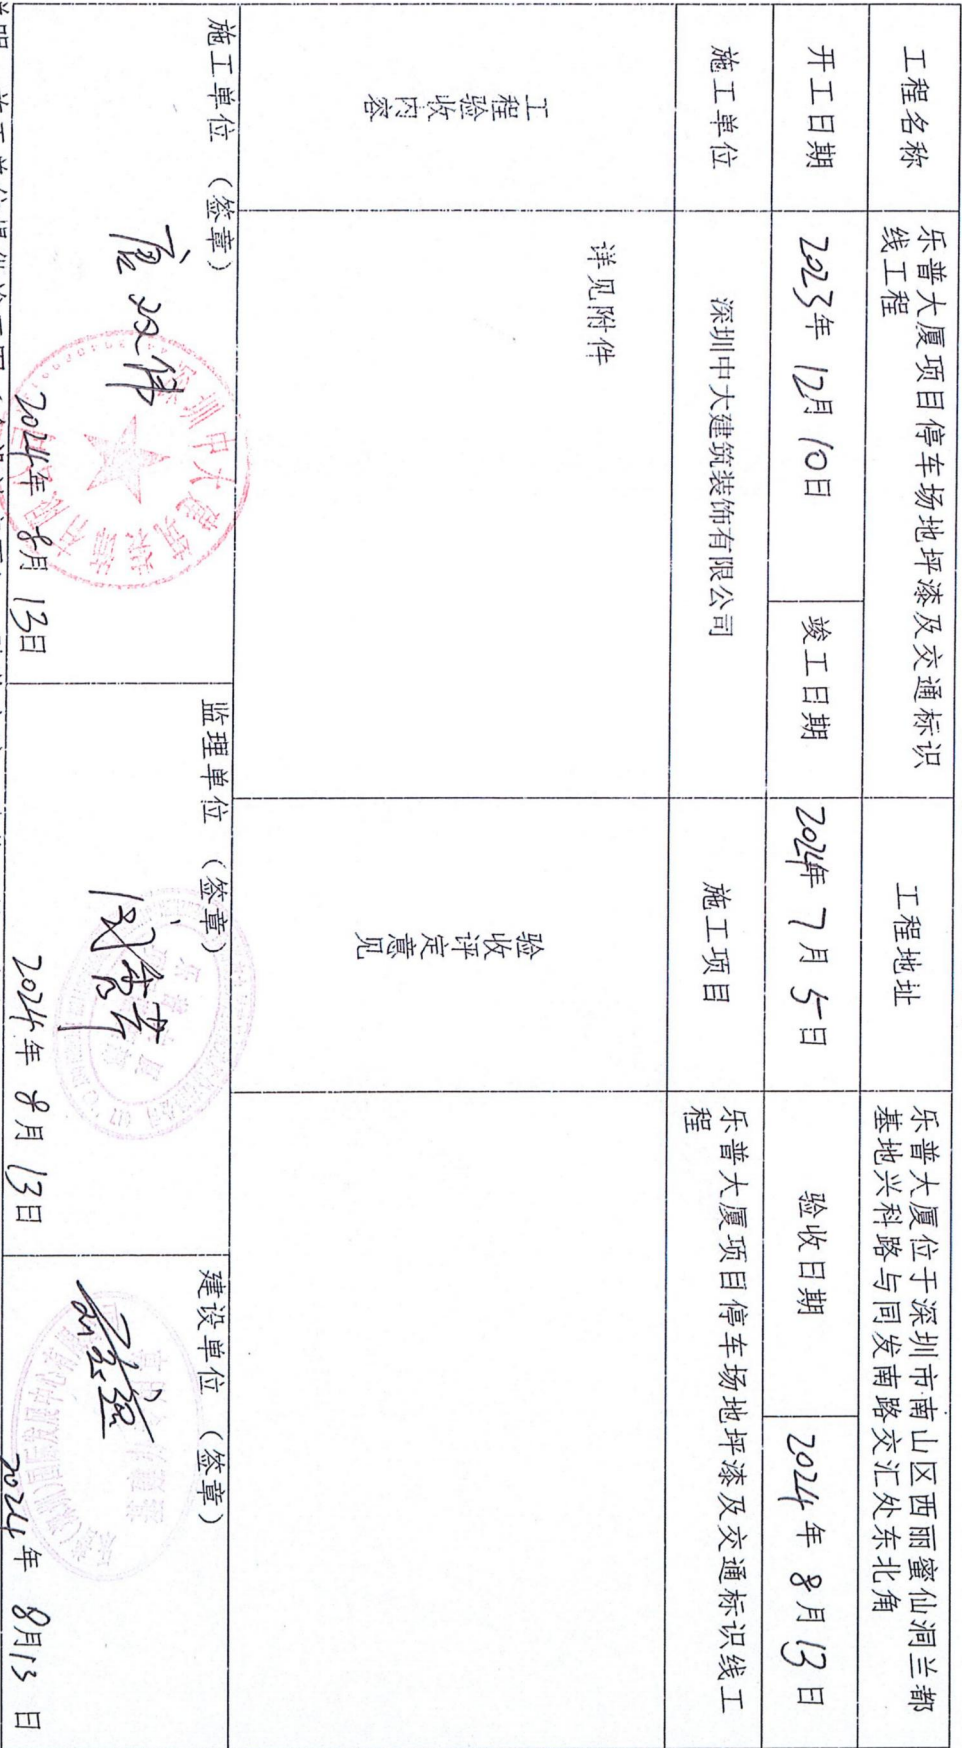 工程名称
乐普大厦项目停车场地坪漆及交通标识
线工程
工程地址
乐普大厦位于深圳市南山区西丽蜜仙洞兰都
基地兴科路与同发南路交汇处东北角
开工日期
2023年 12月 10日
竣工日期
2024年 7月 5日
验收日期
2024年 8月 13日
施工单位
深圳中大建筑装饰有限公司
施工项目
乐普大厦项目停车场地坪漆及交通标识线工
程
工程
验收内容
详见附件
验收
评定意见
施工单位 (签章)
深圳中大建筑装饰有限公司
2024年 8月 13日
监理单位 (签章)
2024年 8月 13日
建设单位 (签章)
2024年 8月13日